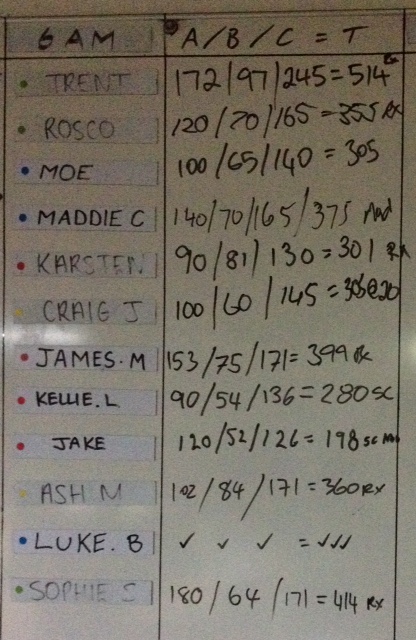 6 AM A / B / C = T
TRENT 172/97/245=514 Rx
ROSCO 120/70/165=355 Rx
MOE 100/65/140=305
MADDIE C 140/70/165/375
KARSTEN 90/81/130=301 Rx
CRAIG J 100/60/145=305@20
JAMES.M 153/75/171=399 Rx
KELLIE.L 90/54/136=280 SC
JAKE 120/52/126=198 SC
ASH M 102/84/171=360 Rx
LUKE.B ✓ ✓ ✓ = ✓✓✓
SOPHIE S 180/64/171=414 Rx